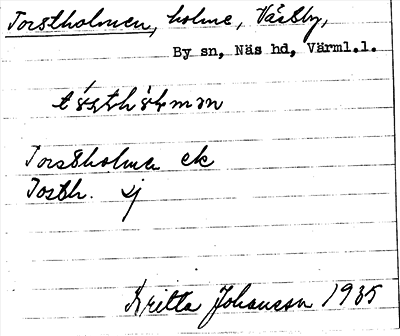 Torstholmen, holme, Västby,
By sn, Näs hd, Värml.l.
Torstholmen ek
Tosth. sj
Britta Johansson 1935